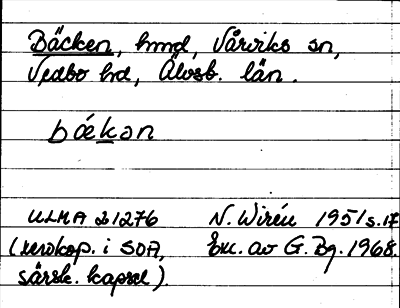 Bäcken, hmd, Vårviks sn,
Vedbo hd, Älvsb. län.
bǽkən
ULMA 21276 N. Wirén 1951 s. 17
(xerokop. i SOA, Exc. av G. Bg. 1968.
särsk. kapsel).